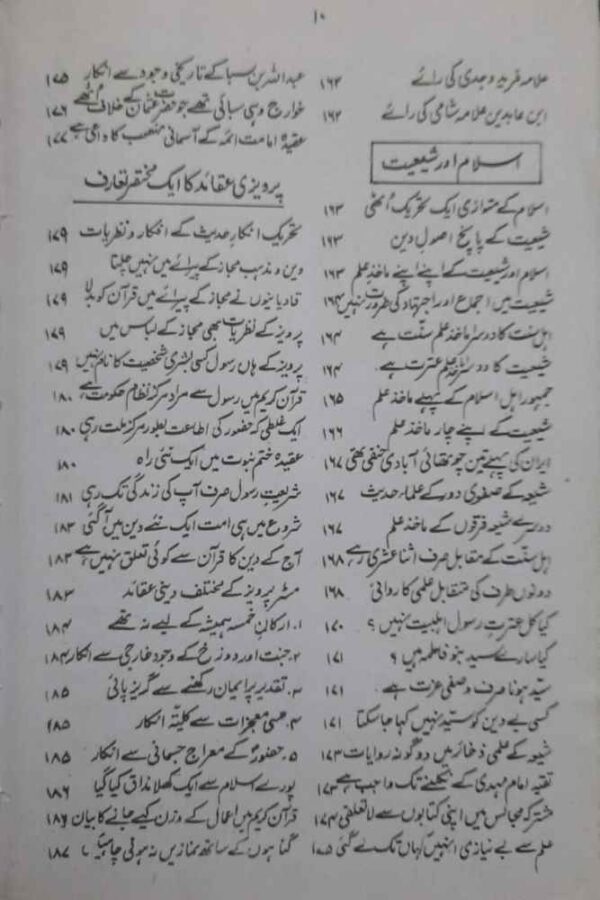 ۱۰
علامہ فرید وجدی کی رائے ۱۶۲
ابن عابدین علامہ شامی کی رائے ۱۶۲
اسلام اور شیعیت
اسلام کے متوازی ایک تحریک اُٹھی ۱۶۳
شیعیت کے پانچ اصولِ دین ۱۶۳
اسلام اور شیعیت کے اپنے اپنے ماخذِ علم ۱۶۳
شیعیت میں اجماع اور اجتہاد کی ضرورت نہیں ۱۶۴
اہل سنت کا دوسرا ماخذ علم سنّت ہے ۱۶۴
شیعیت کا دوسرا ماخذ علم عترت ہے ۱۶۴
جمہور اہل اسلام کے پہلے ماخذ علم ۱۶۵
شیعیت کے اپنے چار ماخذ علم ۱۶۶
ایران کی پہلے تین چوتھائی آبادی حنفی تھی ۱۶۷
شیعہ کے صفوی دور کے علماء حدیث ۱۶۷
دوسرے شیعہ فرقوں کے ماخذ علم ۱۶۷
اہل سنّت کے مقابل صرف اثنا عشری رہے ۱۶۸
دونوں طرف کی متقابل علمی کاروائی ۱۶۸
کیا کل عترتِ رسول اہلبیت نہیں ؟ ۱۷۰
کیا سارے سید بنو فاطمہ ہیں ؟ ۱۷۱
سیّد ہونا صرف وصفی عزت ہے ۱۷۱
کسی بے دین کو سیّد نہیں کہا جا سکتا ۱۷۱
شیعہ کے علمی ذخائر میں دو گونہ روایات ۱۷۳
تقیہ امام مہدی کے نکلنے تک واجب ہے ۱۷۳
مشترکہ مجالس میں اپنی کتابوں سے لا تعلقی ۱۷۴
علم سے بے نیازی انہیں کہاں تک لے گئی ۱۷۵
عبداللہ بن سبا کے تاریخی وجود سے انکار ۱۷۵
خوارج وہی سبائی تھے جو حضرت عثمان کے خلاف اُٹھے ۱۷۶
عقیدۂ امامت ائمہ کے آسمانی منصب کا داعی ہے ۱۷۷
پرویزی عقائد کا ایک مختصر تعارف
تحریک انکارِ حدیث کے افکار و نظریات ۱۷۹
دین و مذہب مجاز کے پیرائے میں نہیں چلتا ۱۷۹
قادیانیوں نے مجاز کے پیرائے میں قرآن کو بدلا ۱۷۹
پرویز کے نظریات بھی مجاز کے لباس میں ۱۷۹
پرویز کے ہاں رسول کسی بشری شخصیت کا نام نہیں ۱۷۹
قرآن کریم میں رسول سے مراد مرکز نظام حکومت ہے ۱۸۰
ایک غلطی کہ حضور کی اطاعت بطور مرکز ملت رہی ۱۸۰
عقیدۂ ختم نبوت میں ایک نئی راہ ۱۸۰
شریعتِ رسول صرف آپ کی زندگی تک رہی ۱۸۱
شروع میں ہی امت ایک نئے دین میں آگئی ۱۸۳
آج کے دین کا قرآن سے کوئی تعلق نہیں ہے ۱۸۳
مسٹر پرویز کے مختلف دینی عقائد ۱۸۳
۱. ارکانِ خمسہ ہمیشہ کے لیے نہ تھے ۱۸۴
۲. جنت اور دوزخ کے وجود خارجی سے انکار ۱۸۴
۳. تقدیر پر ایمان رکھنے سے گریز پائی ۱۸۵
۴. حسی معجزات سے کلیتہً انکار ۱۸۵
۵. حضورؐ کے معراج جسمانی سے انکار ۱۸۵
پورے اسلام سے ایک کھلا مذاق کیا گیا ۱۸۶
قرآن کریم میں اعمال کے وزن کیے جانے کا بیان ۱۸۶
گناہوں کے ساتھ نمازیں نہ ہونی چاہئیں ۱۸۷